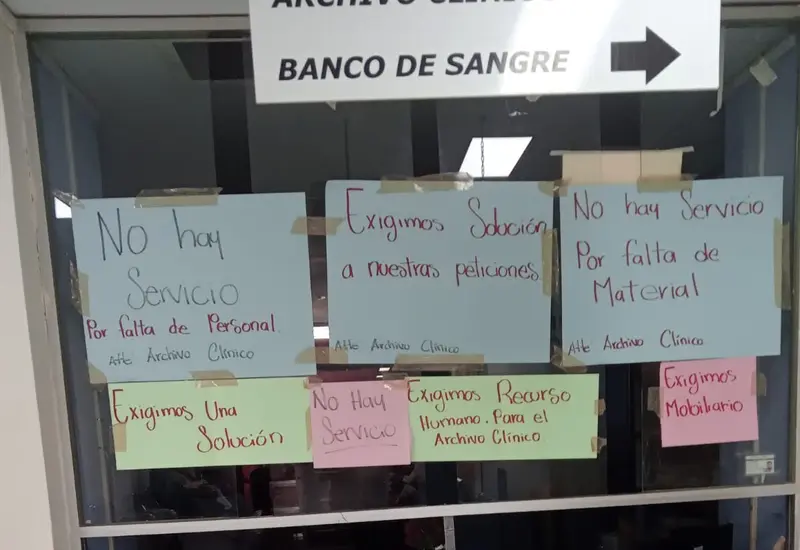 ARCHIVO CLÍNICO
BANCO DE SANGRE
No hay
Servicio
Por falta de Personal.
Atte Archivo Clínico
Exigimos Solución
a nuestras peticiones.
Atte Archivo Clínico
No hay Servicio
Por falta de
Material
Atte Archivo Clínico
Exigimos Una
Solución
No Hay
Servicio
Exigimos Recurso
Humano. Para el
Archivo Clínico
Exigimos
Mobiliario